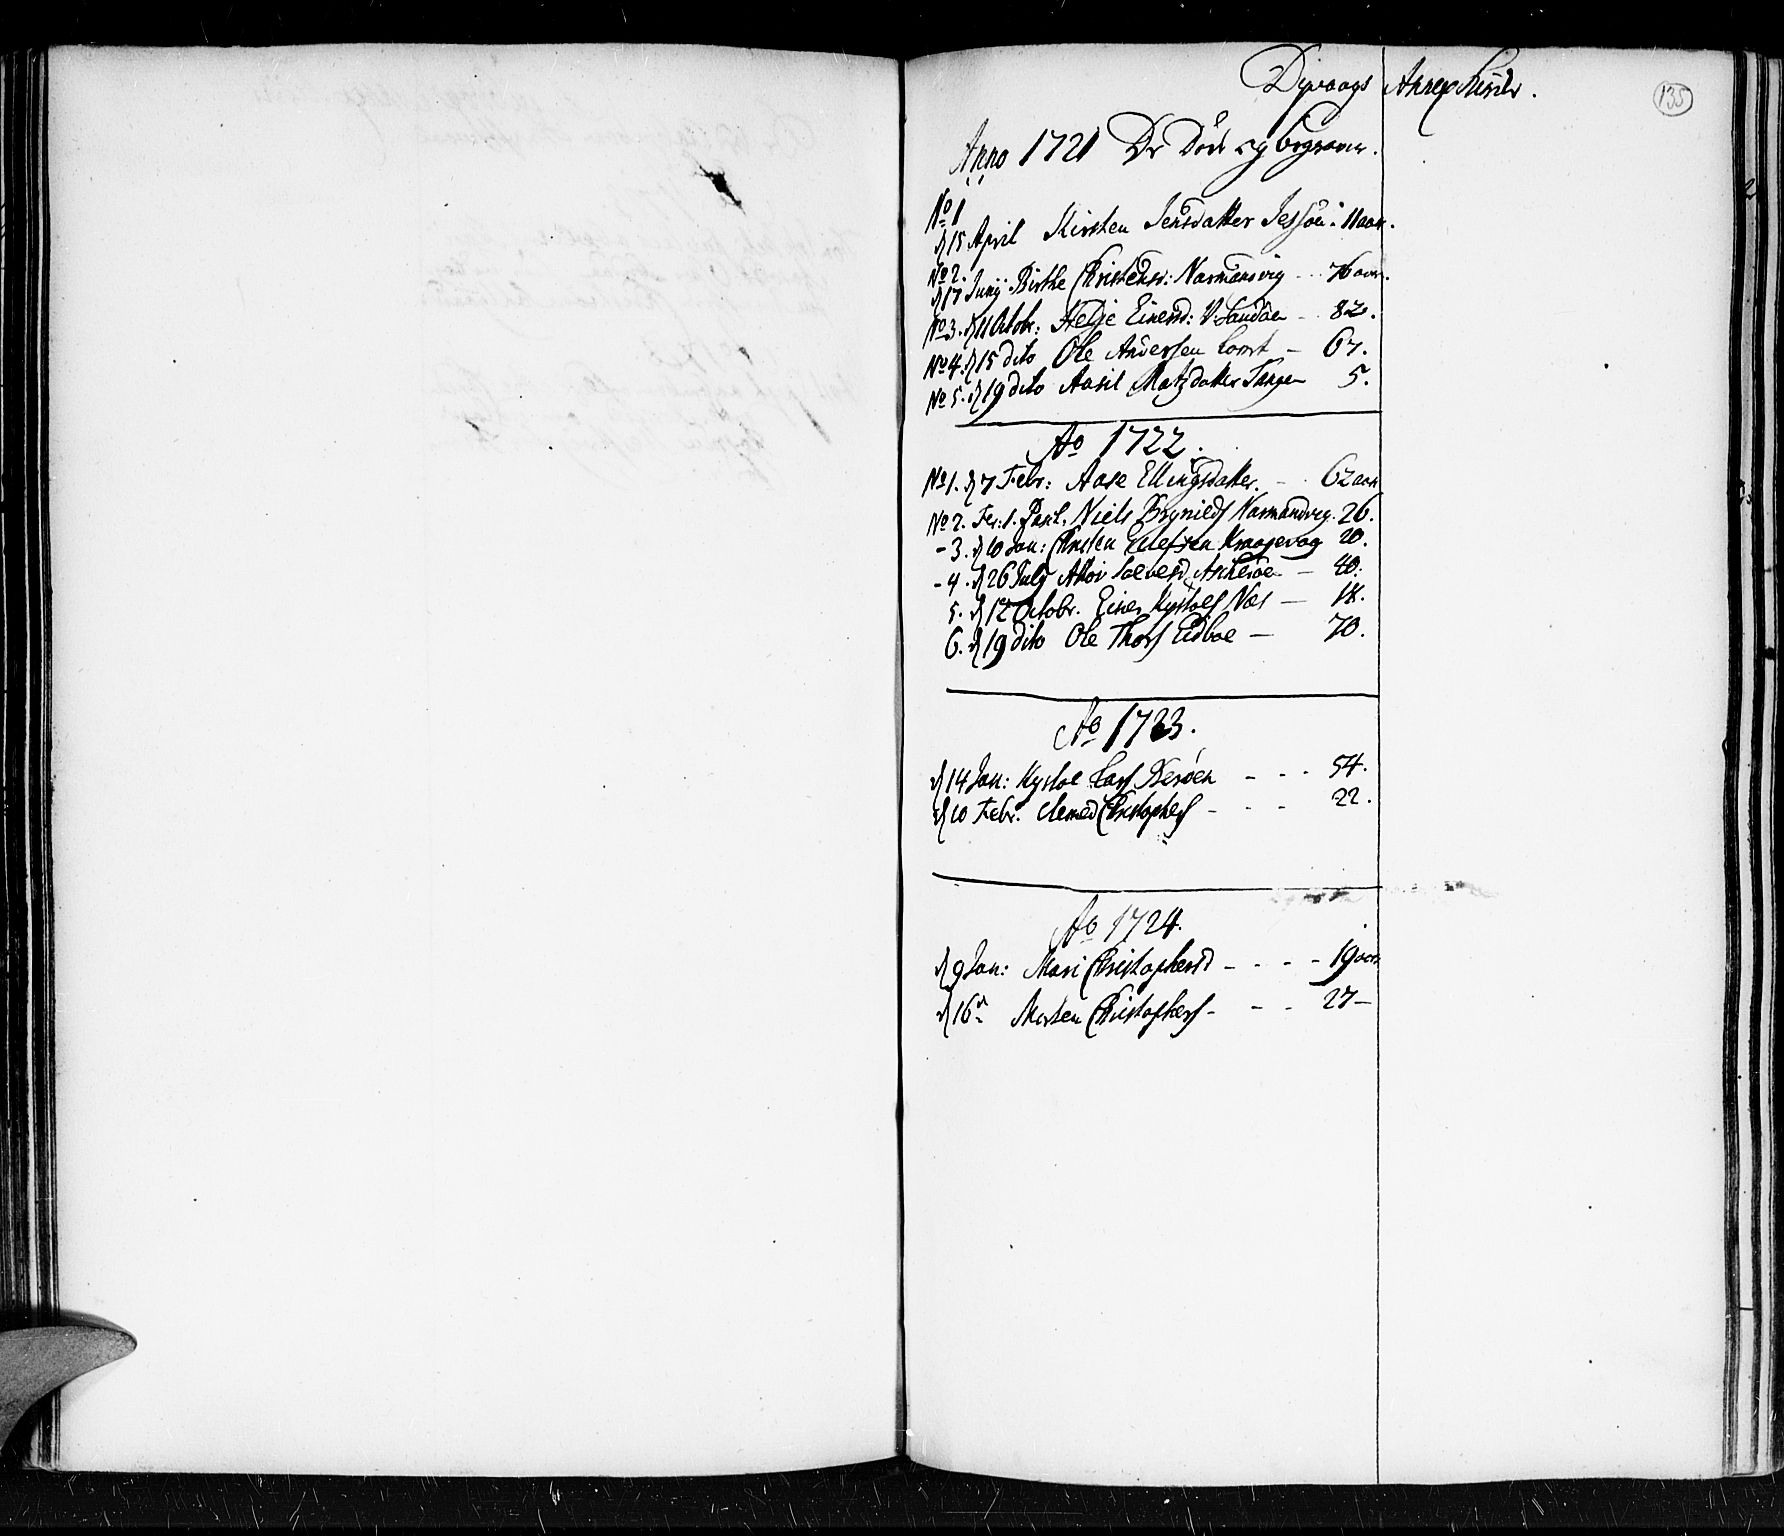 Dyvaags Annex Kirke.
135
Anno 1721 De Döde og begravne.
No 1
d 15 April Kirsten Jensdatter Jessöe: 11 aar.
No 2.
d 17 Junij Birthe Christensd: Narmandsvig - - 76 aar.
No 3. d 11 Octobr: Helje Einersd: V: Sandöen - - 82.
No 4. d 15 dito Ole Andersen - 67.
No 5. d 19 dito Aasil Matzdatter Tangen 5.
Ao 1722.
No 1. d 7 Febr: Aase Ellingsdatter. - - 62 aar
No 2. Fer: 1. Pasch. Niels Narmandsvig. 26.
- 3. d 10 Jan: Christen Ellefsen Kraagevog 20.
- 4. d 26 July Askeröen - 40.
5. d 12 Octobr. Einer Næs - 18.
6. d 19 dito Ole Thors Eidboe - 70.
Ao 1723.
d 14 Jan: Lars - - - 54.
d 10 Febr. Christophers - - - 22.
Ao 1724.
d 9 Jan: Mari Christophersd - - - - 19 aar
d 16 d Morten Christophers - - - 27 -